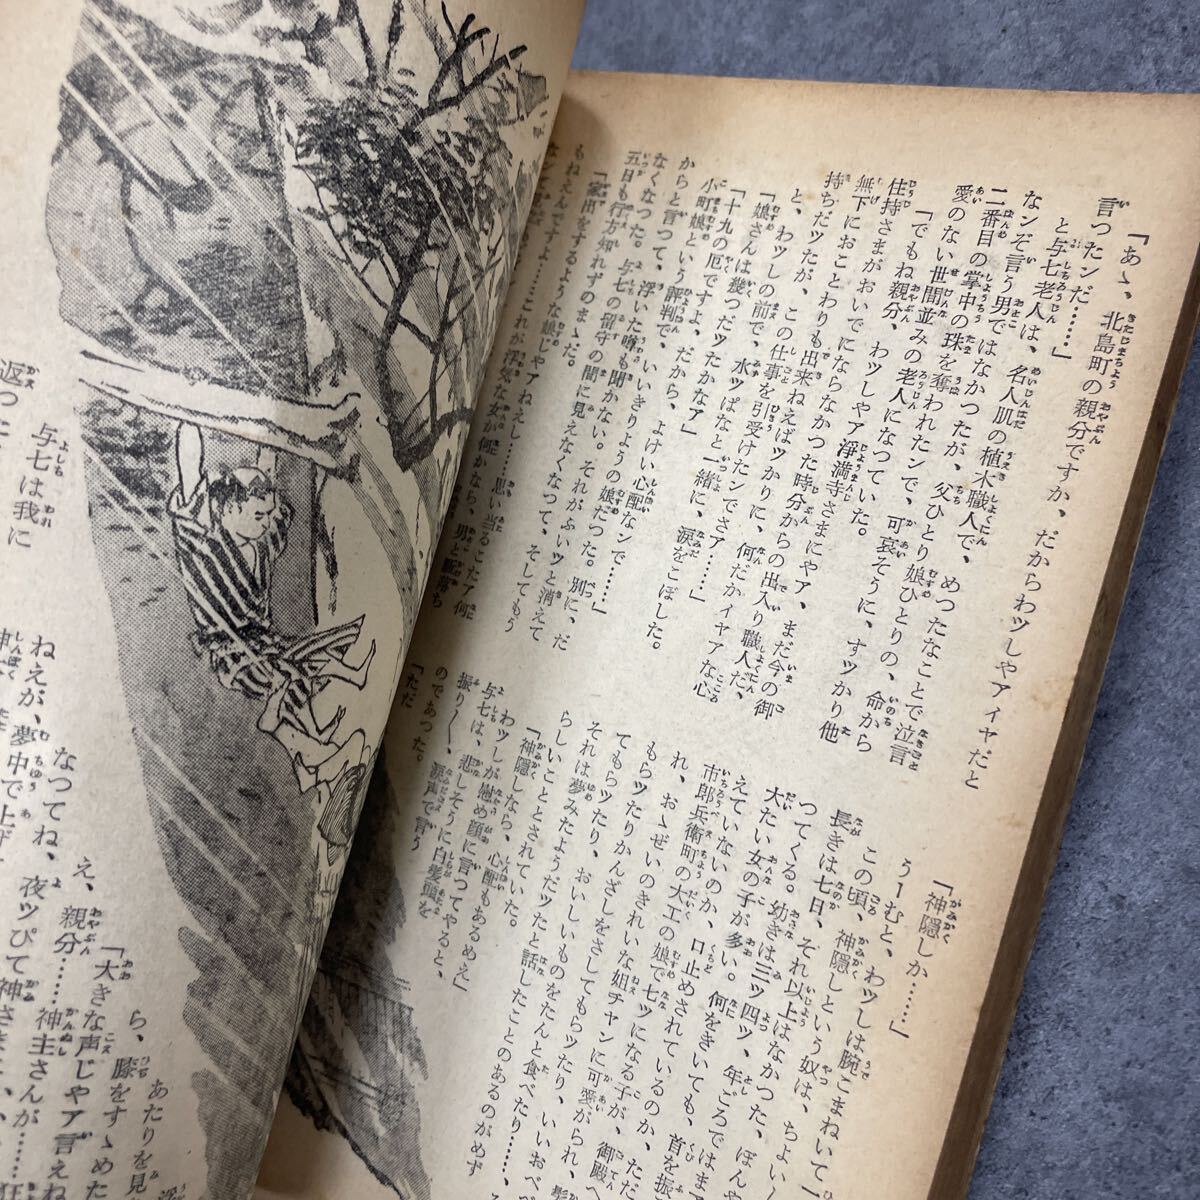 「あゝ、北島町の親分ですか、だからわッしやアイヤだと
言ったンだ……」
と与七老人は、名人肌の植木職人で、めつたなことで泣言
なンぞ言う男ではなかつたが、父ひとり娘ひとりの、命から
二番目の掌中の珠を奪われたンで、可哀そうに、すッかり他
愛のない世間並みの老人になつていた。
「でもね親分、わッしやア浄満寺さまにやア、まだ今の御
住持さまがおいでにならなかつた時分からの出入り職人だ、
無下におことわりも出来ねえばッかりに、何だかイヤアな心
持ちだッたが、この仕事を引受けたンでさア……」
と、わッしの前で、水ッぱなと一緒に、涙をこぼした。
「娘さんは幾つだッたかなア」
「十九の厄ですよ、だから、よけい心配なンで……」
小町娘という評判で、いいきりようの娘だつた。別に、だ
からと言つて、浮いた噂も聞かない。それがふいッと消えて
なくなつた。与七の留守の間に見えなくなつて、そしてもう
五日も行方知れずのまゝだ。
「家出をするような娘じやアねえし……思い当るこたア何
もねえんですよ……これが浮気な女か何かなら、男と駈落ち
「神隠しか……」
うーむと、わッしは腕こまねいて一
この頃、神隠しという奴は、ちよい
長きは七日、それ以上はなかつた、ぼんや
つてくる。幼きは三ッ四ッ、年ごろではま
大たい女の子が多い。何をきいても、首を振
えていないのか、口止めされているのか、ただ
市郎兵衛町の大工の娘で七ッになる子が、御殿へ
れ、お〻ぜいのきれいな姐チャンに可愛がられ、髪
もらッたりかんざしをさしてもらッたり、いいおべべ
てもらッたり、おいしいものをたんと食べたり……
それは夢みたようだッたと話したことのあるのがめず
らしいこととされていた。
「神隠しなら、心配もあるめえ」
わッしが慰め顔に言つてやると、
与七は、悲しそうに白髪頭を
振り〱、涙声で言う
のであつた。
「ただ
与七は我に
返つ
あたりを見
ら、膝をすゝめた
「大きな声じやア言えね
え、親分……神主さんが……
なつてね、夜ッぴて神さまに
ねえが、夢中で上げ